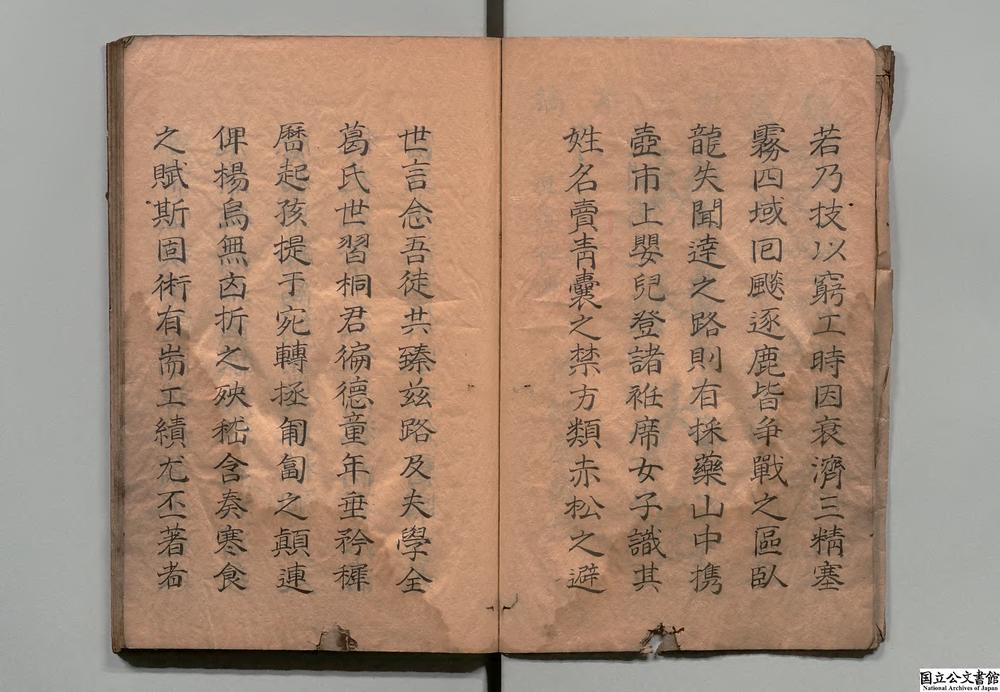 若乃技以窮工時因衰濟三精塞
霧四域囘飈逐鹿皆争戰之區臥
龍失聞達之路則有採藥山中携
壺市上嬰兒登諸袵席女子識其
姓名賣靑囊之禁方類赤松之避
世言念吾徒共臻茲路及夫學全
葛氏世習桐君徧德童年垂矜穉
曆起孩提于宛轉拯匍匐之顛連
俾楊烏無凶折之殃嵇含奏寒食
之賦斯固術有耑工績尤丕著者
国立公文書館
National Archives of Japan